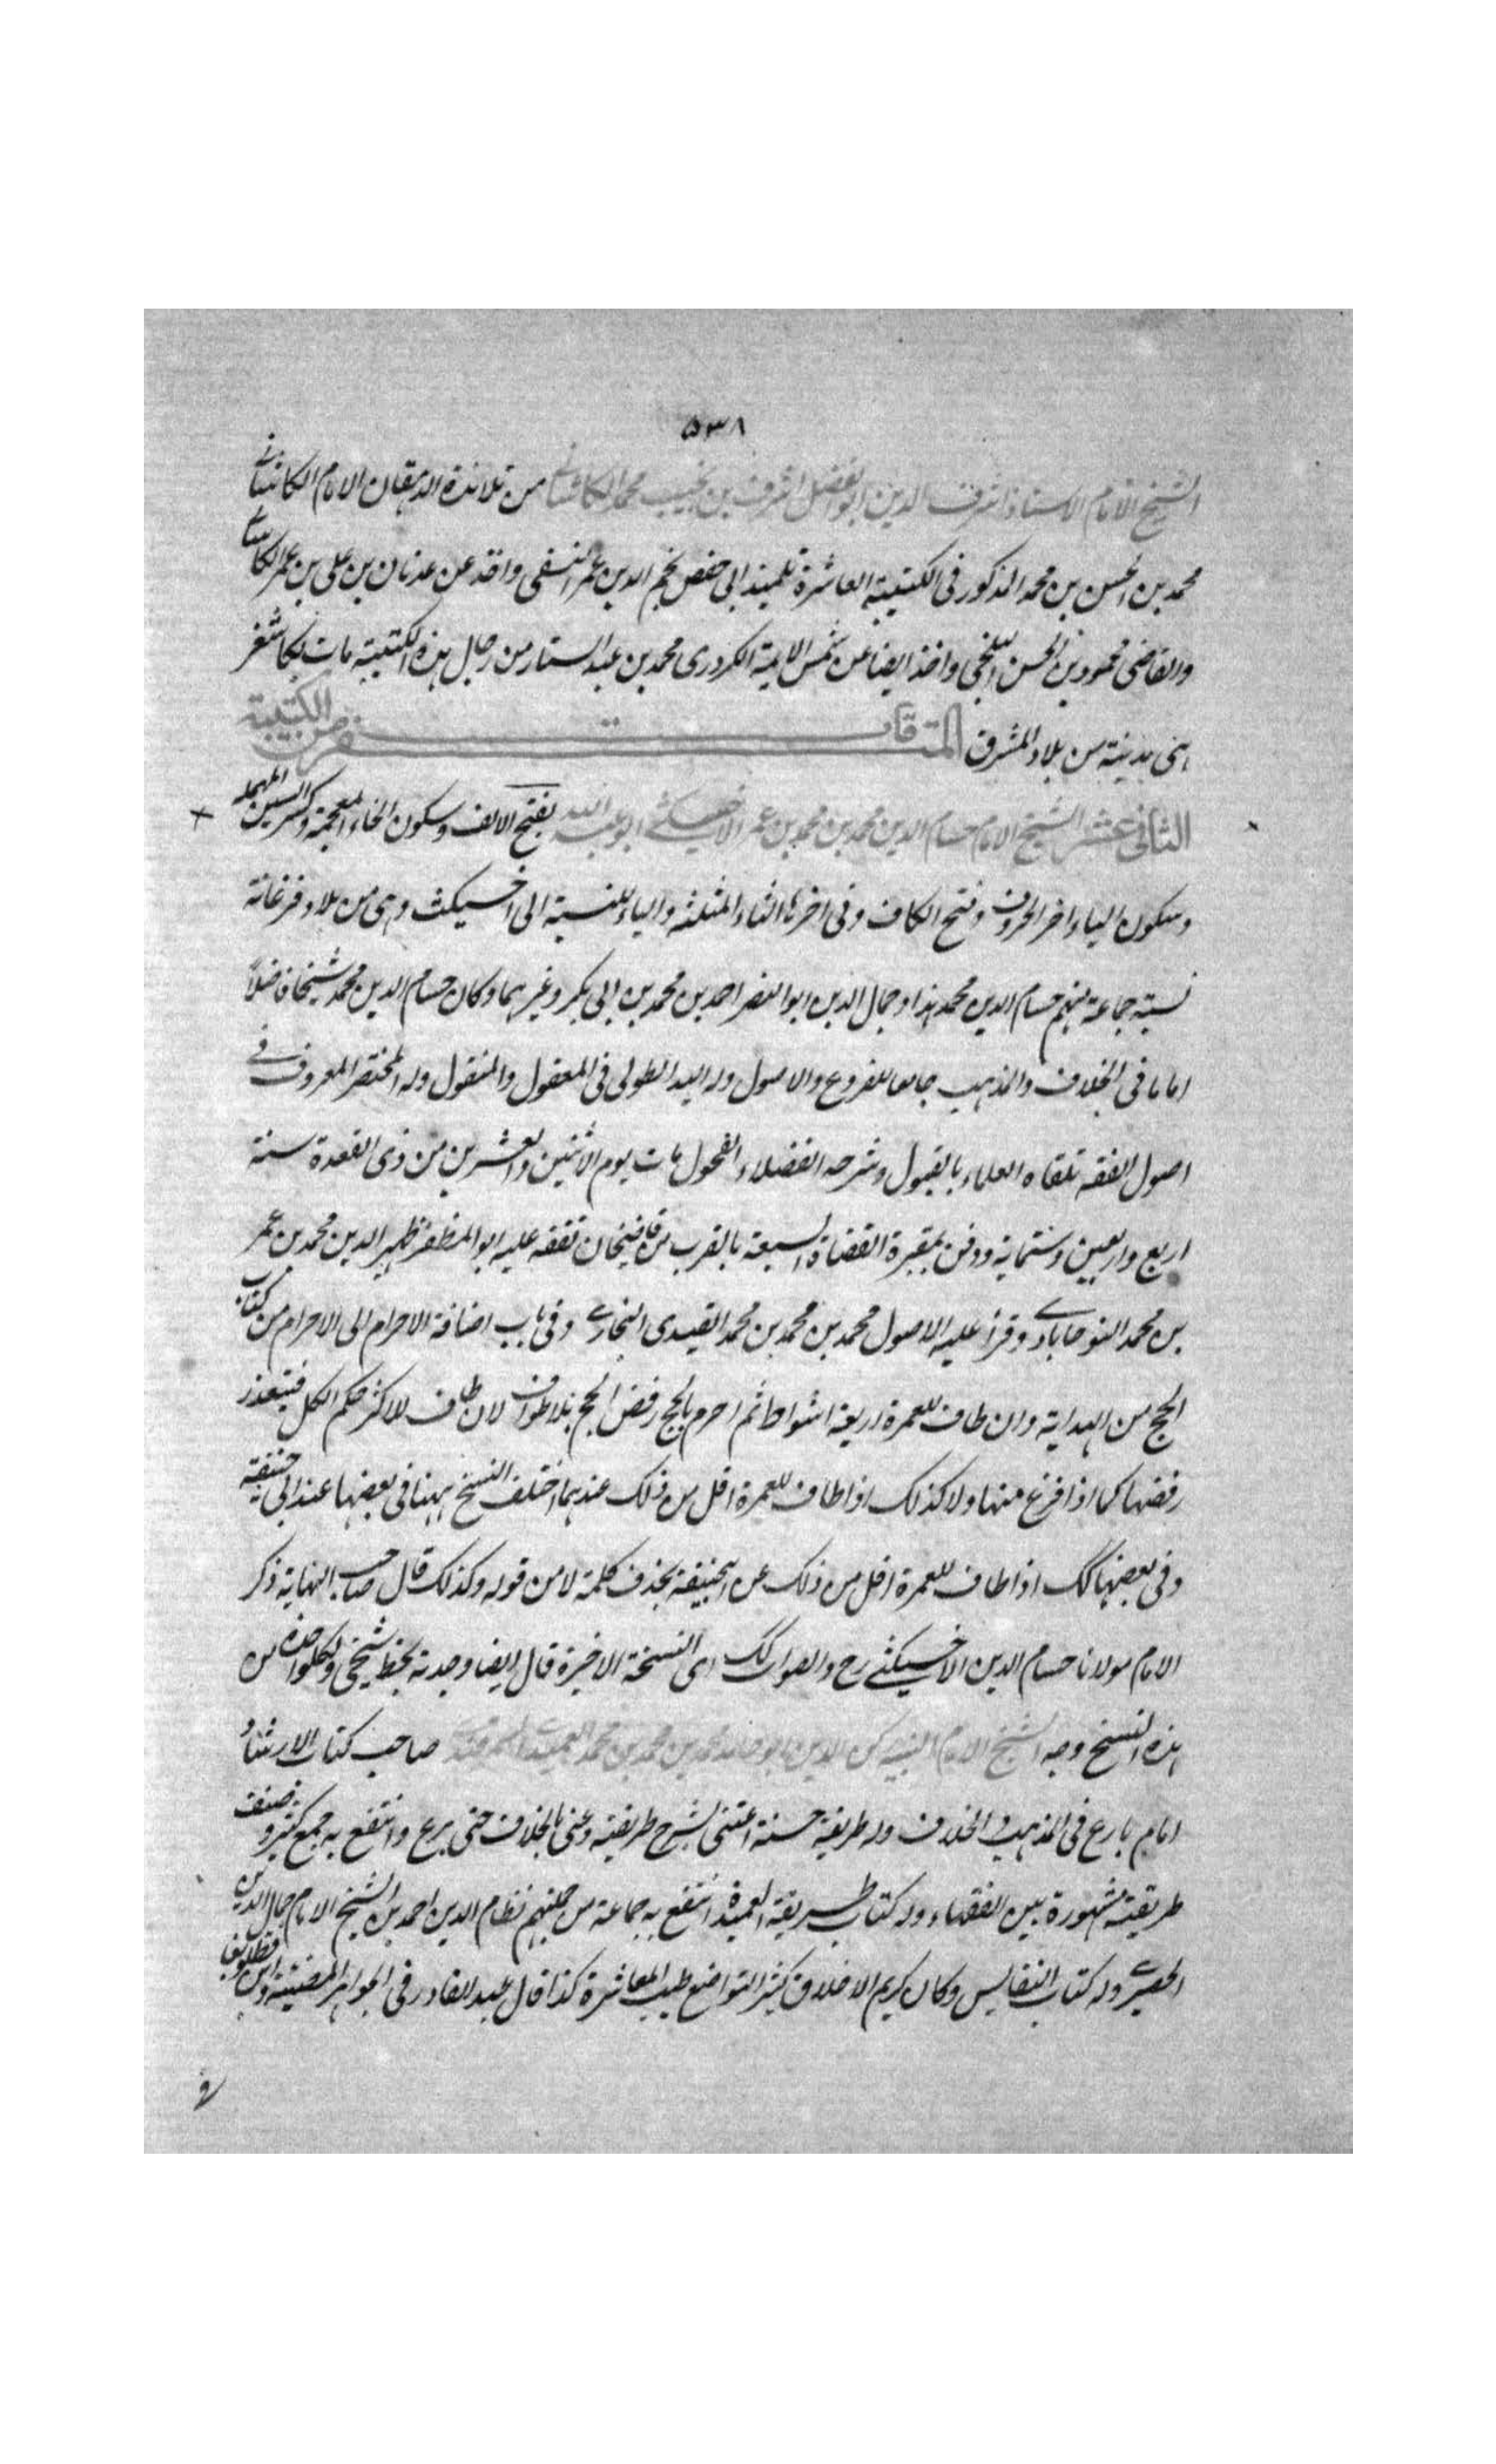 ٥٣٨
الشيخ الامام الاستاذ اشرف الدين ابو الفضل اشرف بن نجيب محمد الكاشانى من تلامذة الدهقان الامام الكاشانى
محمد بن الحسن بن محمد المذكور فى الكتيبة العاشرة تلميذ ابى حفص نجم الدين عمر النسفى واخذ عن عدنان بن على بن عمر الكاشانى
والقاضى محمود بن الحسن البلخى واخذ ايضا عن شمس الايمة الكردرى محمد بن عبد الستار من رجال هذه الكتيبة مات بكاشغر
هى مدينة من بلاد المشرق المتفرقات من الكتيبة
الثانى عشر الشيخ الامام حسام الدين محمد بن محمد بن عمر الاخسيكثى ابو عبد الله بفتح الالف وسكون الخاء المعجمة وكسر السين المهملة
وسكون الياء اخر الحروف وفتح الكاف وفى اخرها الثاء المثلثة والياء للنسبة الى اخسيكث وهى من بلاد فرغانة
نسبة جماعة منهم حسام الدين محمد هذا وجمال الدين ابو النصر احمد بن محمد بن ابى بكر وغيرهما وكان حسام الدين محمد شيخا فاضلا
اماما فى الخلاف والمذهب جامعا للفروع والاصول وله اليد الطولى فى المعقول والمنقول وله المختصر المعروف فى
اصول الفقه تلقاه العلماء بالقبول وشرحه الفضلاء الفحول مات يوم الاثنين والعشرين من ذى القعدة سنة
اربع واربعين وستماية ودفن بمقبرة القضاة السبعة بالقرب من قاضيخان تفقه عليه ابو المظفر ظهير الدين محمد بن عمر
بن محمد النوجابادى وقرأ عليه الاصول محمد بن محمد بن محمد القيدى البخارى وفى باب اضافة الاحرام الى الاحرام من كتاب
الحج من الهداية وان طاف للعمرة اربعة اشواط ثم احرم بالحج رفض الحج بلا خلاف لان للاكثر حكم الكل فيتعذر
رفضها كما اذا فرغ منها ولا كذلك اذا طاف للعمرة اقل من ذلك عندهما اختلف النسخ ههنا فى بعضها عند ابى حنيفة
وفى بعضها كك اذا طاف للعمرة اقل من ذلك عن ابحنيفة بحذف كلمة لا من قوله وكذلك قال صاحب النهاية ذكر
الامام مولانا حسام الدين الاخسيكثى رح والصواب كك اى النسخة الاخيرة قال ايضا وجدته بخط شيخى ولكل واحدة من
هذه النسخ وجه الشيخ الامام النبيه ركن الدين ابو حامد محمد بن محمد بن محمد العميدى السمرقندى صاحب كتاب الارشاد
امام بارع فى المذهب والخلاف وله طريقة حسنة اعتنى بشرح طريقته وعنى بالخلاف حتى برع وانتفع به جمع كثير وصنف
طريقته مشهورة بين الفقهاء وله كتاب طريقة العميدى انتفع به جماعة من جملتهم نظام الدين احمد بن الشيخ الامام جمال الدين
الحصيرى وله كتاب النفايس وكان كريم الاخلاق كثير التواضع طيب المعاشرة كذا قال عبد القادر فى الجواهر المضيئة وابن قطلوبغا